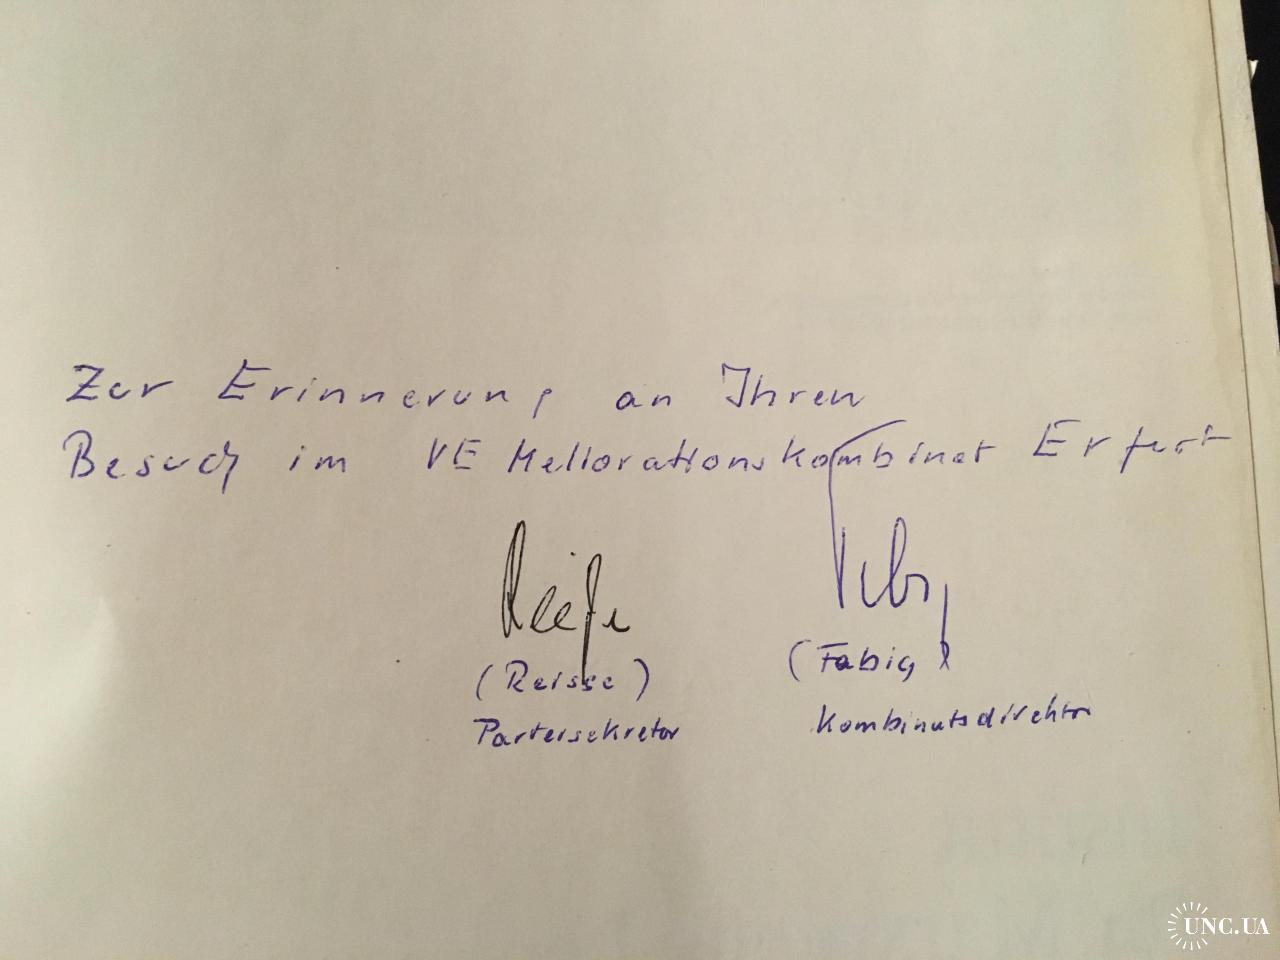 Zur Erinnerung an Ihren
Besuch im VE Meliorationskombinat Erfurt
(Reisse)
Parteisekretär
(Fabig)
Kombinatsdirektor
UNC.UA